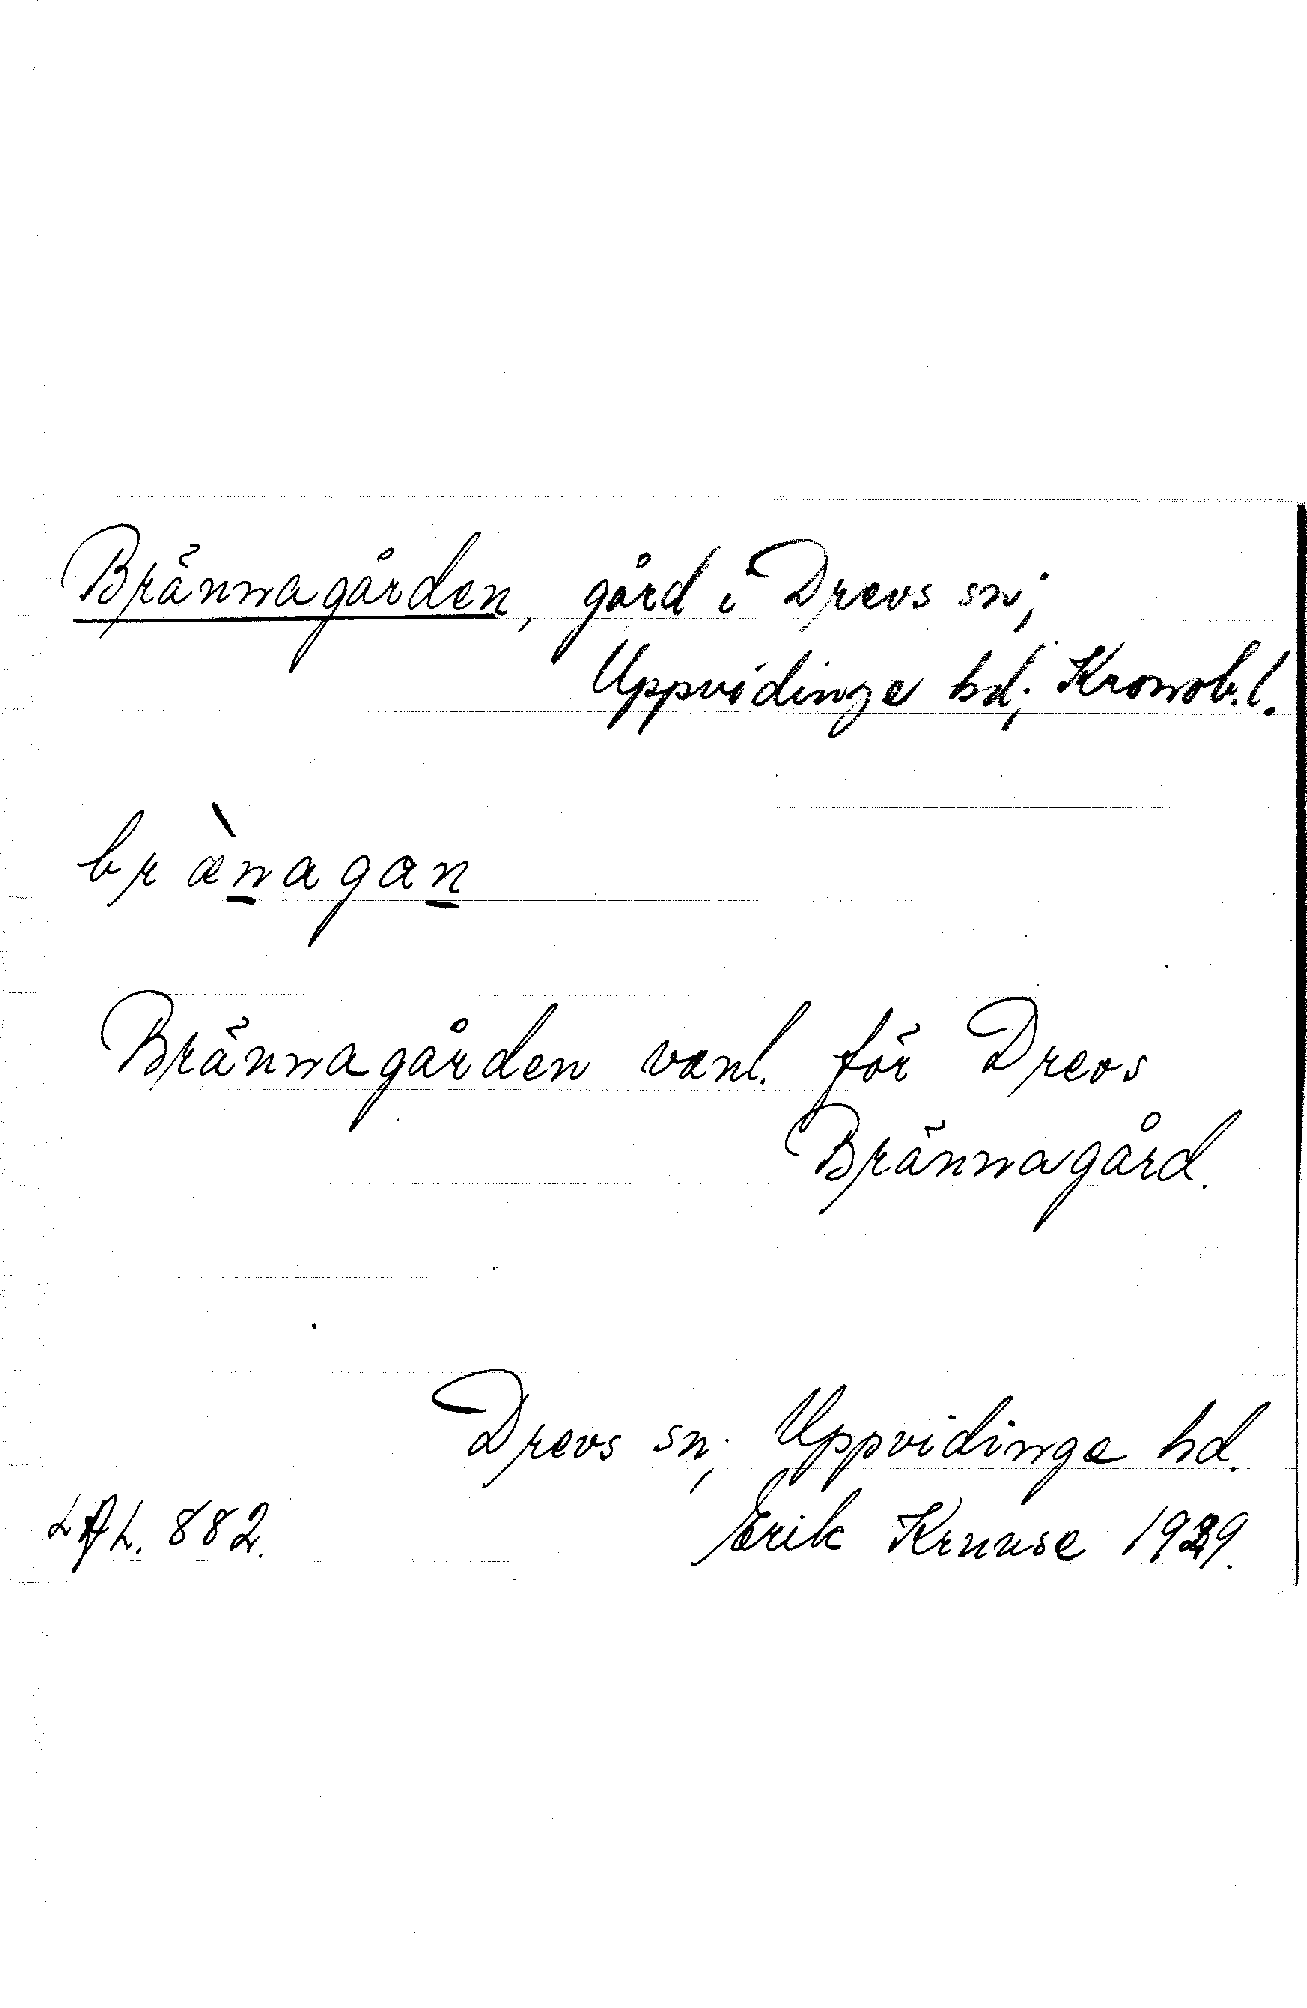 Brännagården, gård i Drevs sn;
Uppvidinge hd; Kronob.l.
bræ̀n̲agan̲
Brännagården vanl. för Drevs
Brännagård.
Drevs sn; Uppvidinge hd.
LAL. 882. Erik Kruuse 1929.